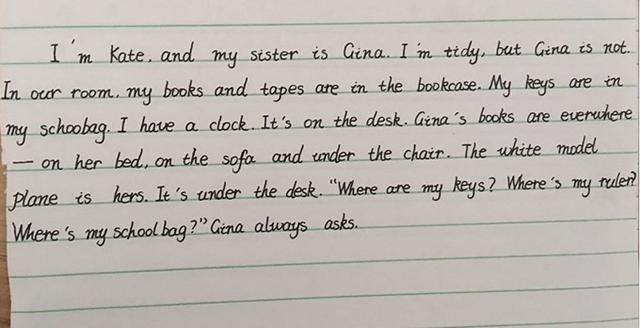 I'm Kate, and my sister is Gina. I'm tidy, but Gina is not.
In our room, my books and tapes are in the bookcase. My keys are in
my schoobag. I have a clock. It's on the desk. Gina's books are everwhere
— on her bed, on the sofa and under the chair. The white model
plane is hers. It's under the desk. "Where are my keys? Where's my ruler?
Where's my school bag?" Gina always asks.